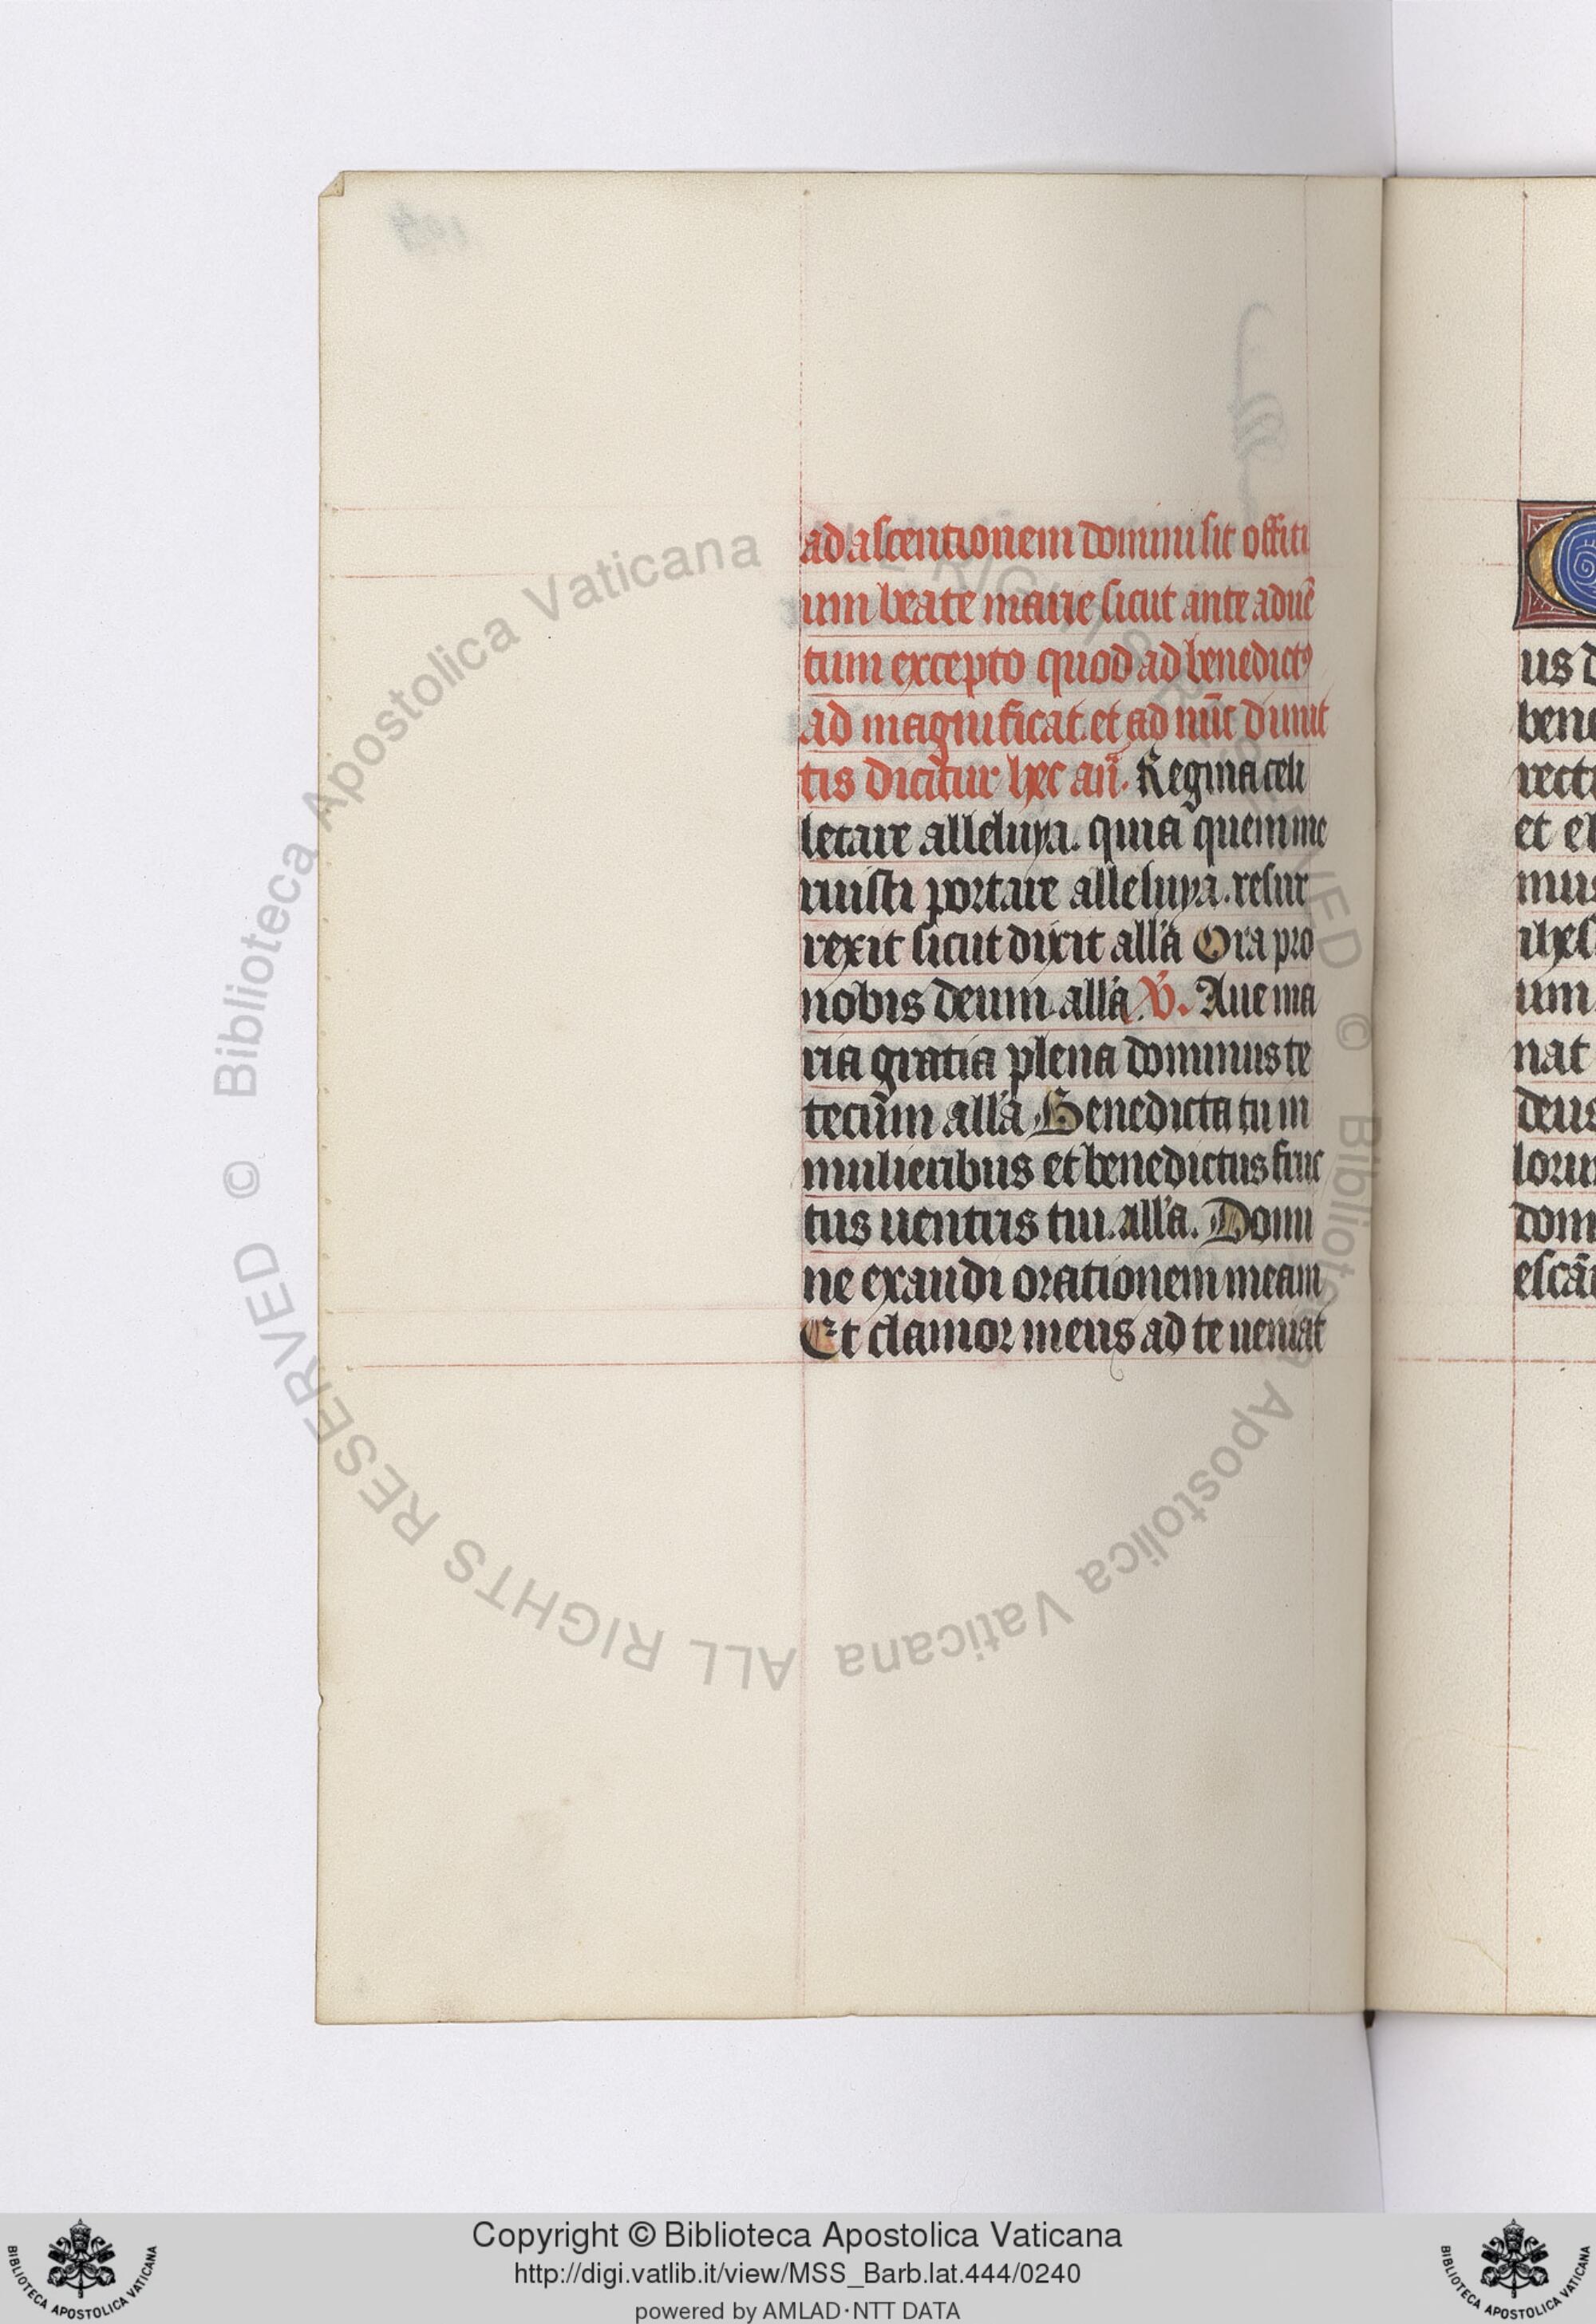 ad ascentionem domini sit offiti
um beate marie sicut ante aduē
tum excepto quod ad benedictꝰ
ad magnificat. et ad nūc dimit
tis dicitur hec añ. Regina celi
letare alleluya. quia quem me
ruisti portare alleluya. resur
rexit sicut dixit all'a Ora pro
nobis deum all'a. V̕. Aue ma
ria gratia plena dominus te
tecum all'a Benedicta tu in
mulieribus et benedictus fruc
tus uentris tui. all'a. Domi
ne exaudi orationem meam
Et clamor meus ad te ueniat
us d
bene
recti
et el
mus
ihes
um
nat
deus
lorum
dom
escā
© Biblioteca Apostolica Vaticana ALL RIGHTS RESERVED
© Biblioteca Apostolica Vaticana ALL RIGHTS RESERVED
Copyright © Biblioteca Apostolica Vaticana
http://digi.vatlib.it/view/MSS_Barb.lat.444/0240
powered by AMLAD·NTT DATA
BIBLIOTECA APOSTOLICA VATICANA
BIBLIOTECA APOSTOLICA VATICANA